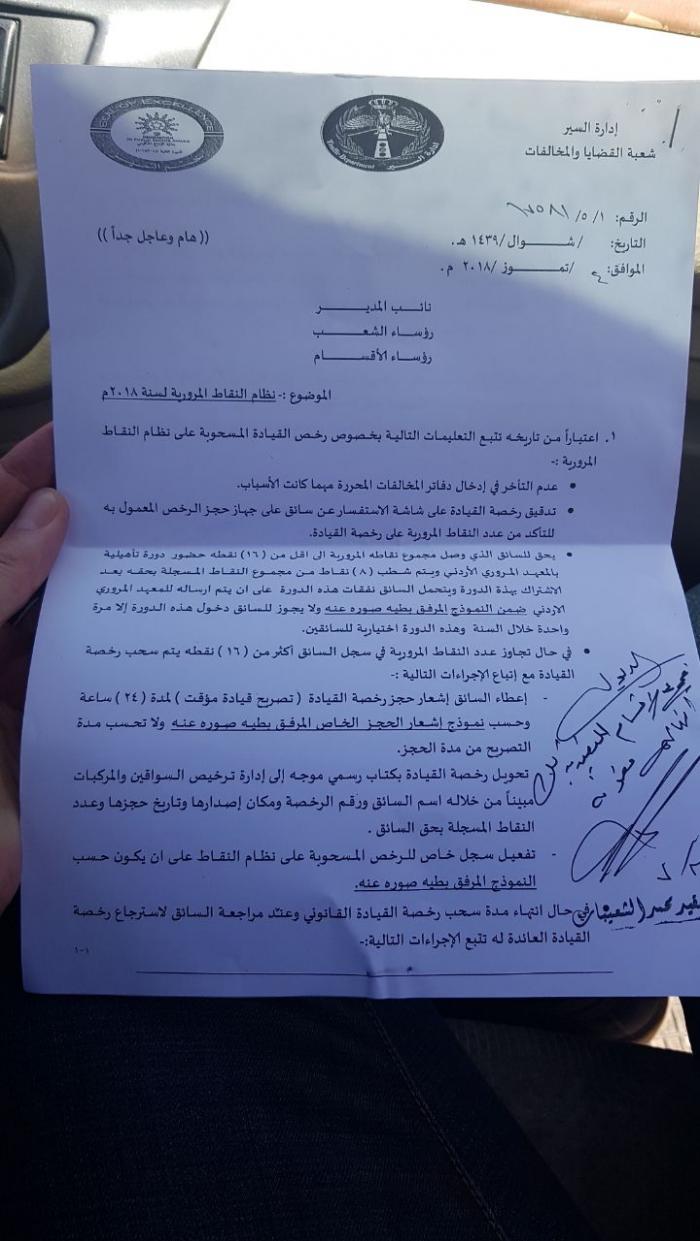 إدارة السير
شعبة القضايا والمخالفات
BUILD EXCELLENCE
Traffic Department
إدارة السير
الرقم: ١/ ٥/
التاريخ: /شـــوال/١٤٣٩ هـ.
((هام وعاجل جداً))
الموافق: ٤ /تمـــوز /٢٠١٨ م.
نائب المدير
رؤساء الشعب
رؤساء الأقسام
الموضوع :- نظام النقاط المرورية لسنة ٢٠١٨م
١. اعتباراً من تاريخه تتبع التعليمات التالية بخصوص رخص القيادة المسحوبة على نظام النقاط
المرورية :-
• عدم التأخر في إدخال دفاتر المخالفات المحررة مهما كانت الأسباب.
• تدقيق رخصة القيادة على شاشة الاستفسار عن سائق على جهاز حجز الرخص المعمول به
للتأكد من عدد النقاط المرورية على رخصة القيادة.
• يحق للسائق الذي وصل مجموع نقاطه المرورية الى اقل من (١٦) نقطه حضور دورة تأهيلية
بالمعهد المروري الأردني ويتم شطب (٨) نقاط من مجموع النقاط المسجلة بحقه بعد
الاشتراك بهذة الدورة ويتحمل السائق نفقات هذه الدورة على ان يتم ارساله للمعهد المروري
الاردني ضمن النموذج المرفق بطيه صوره عنه ولا يجوز للسائق دخول هذه الدورة إلا مرة
واحدة خلال السنة وهذه الدورة اختيارية للسائقين.
• في حال تجاوز عدد النقاط المرورية في سجل السائق أكثر من (١٦) نقطه يتم سحب رخصة
القيادة مع إتباع الإجراءات التالية :-
- إعطاء السائق إشعار حجز رخصة القيادة (تصريح قيادة مؤقت) لمدة (٢٤) ساعة
وحسب نموذج إشعار الحجز الخاص المرفق بطيه صوره عنه ولا تحسب مدة
التصريح من مدة الحجز.
تحويل رخصة القيادة بكتاب رسمي موجه إلى إدارة ترخيص السواقين والمركبات
مبيناً من خلاله اسم السائق ورقم الرخصة ومكان إصدارها وتاريخ حجزها وعدد
النقاط المسجلة بحق السائق .
- تفعيل سجل خاص للرخص المسحوبة على نظام النقاط على ان يكون حسب
النموذج المرفق بطيه صوره عنه.
في حال انتهاء مدة سحب رخصة القيادة القانوني وعند مراجعة السائق لاسترجاع رخصة
القيادة العائدة له تتبع الإجراءات التالية:-
١-١